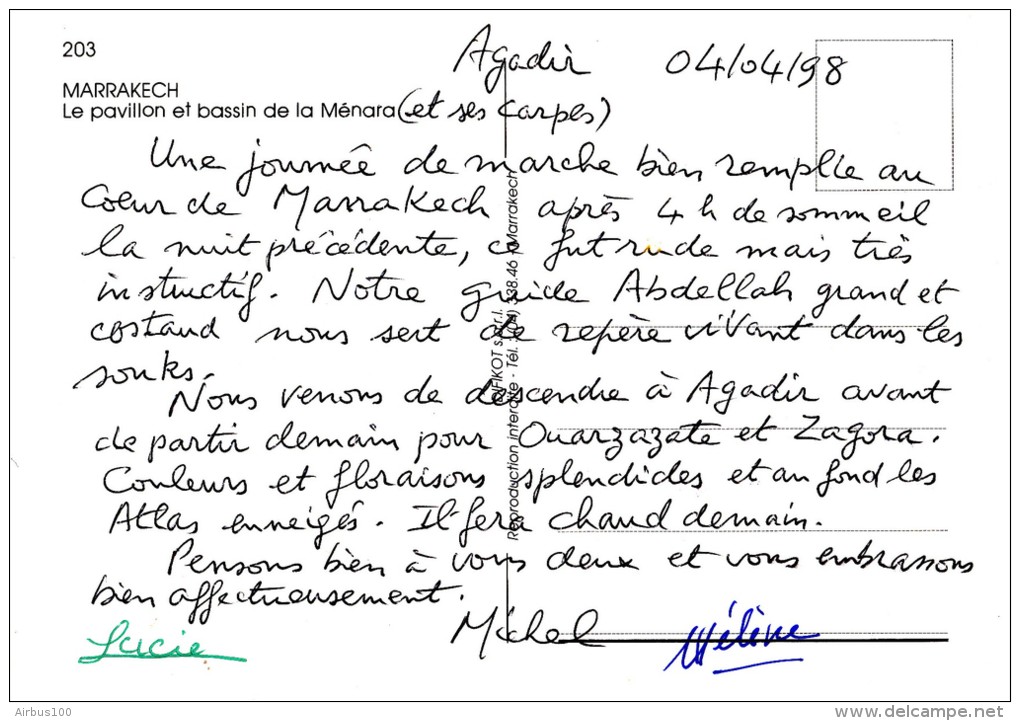 203
Agadir 04/04/98
MARRAKECH
Le pavillon et bassin de la Ménara (et ses carpes)
Une journée de marche bien remplie au
Coeur de Marrakech après 4 h de sommeil
la nuit précédente, ce fut rude mais très
instructif. Notre guide Abdellah grand et
costaud nous sert de repère vivant dans les
souks.
Nous venons de descendre à Agadir avant
de partir demain pour Ouarzazate et Zagora.
Couleurs et floraisons splendides et au fond les
Atlas enneigés. Il fera chaud demain.
Pensons bien à vous deux et vous embrassons
bien affectueusement.
Lucie Michel Hélène
Reproduction interdite - Tél. 338.46 - Marrakech
Airbus100
www.delcampe.net